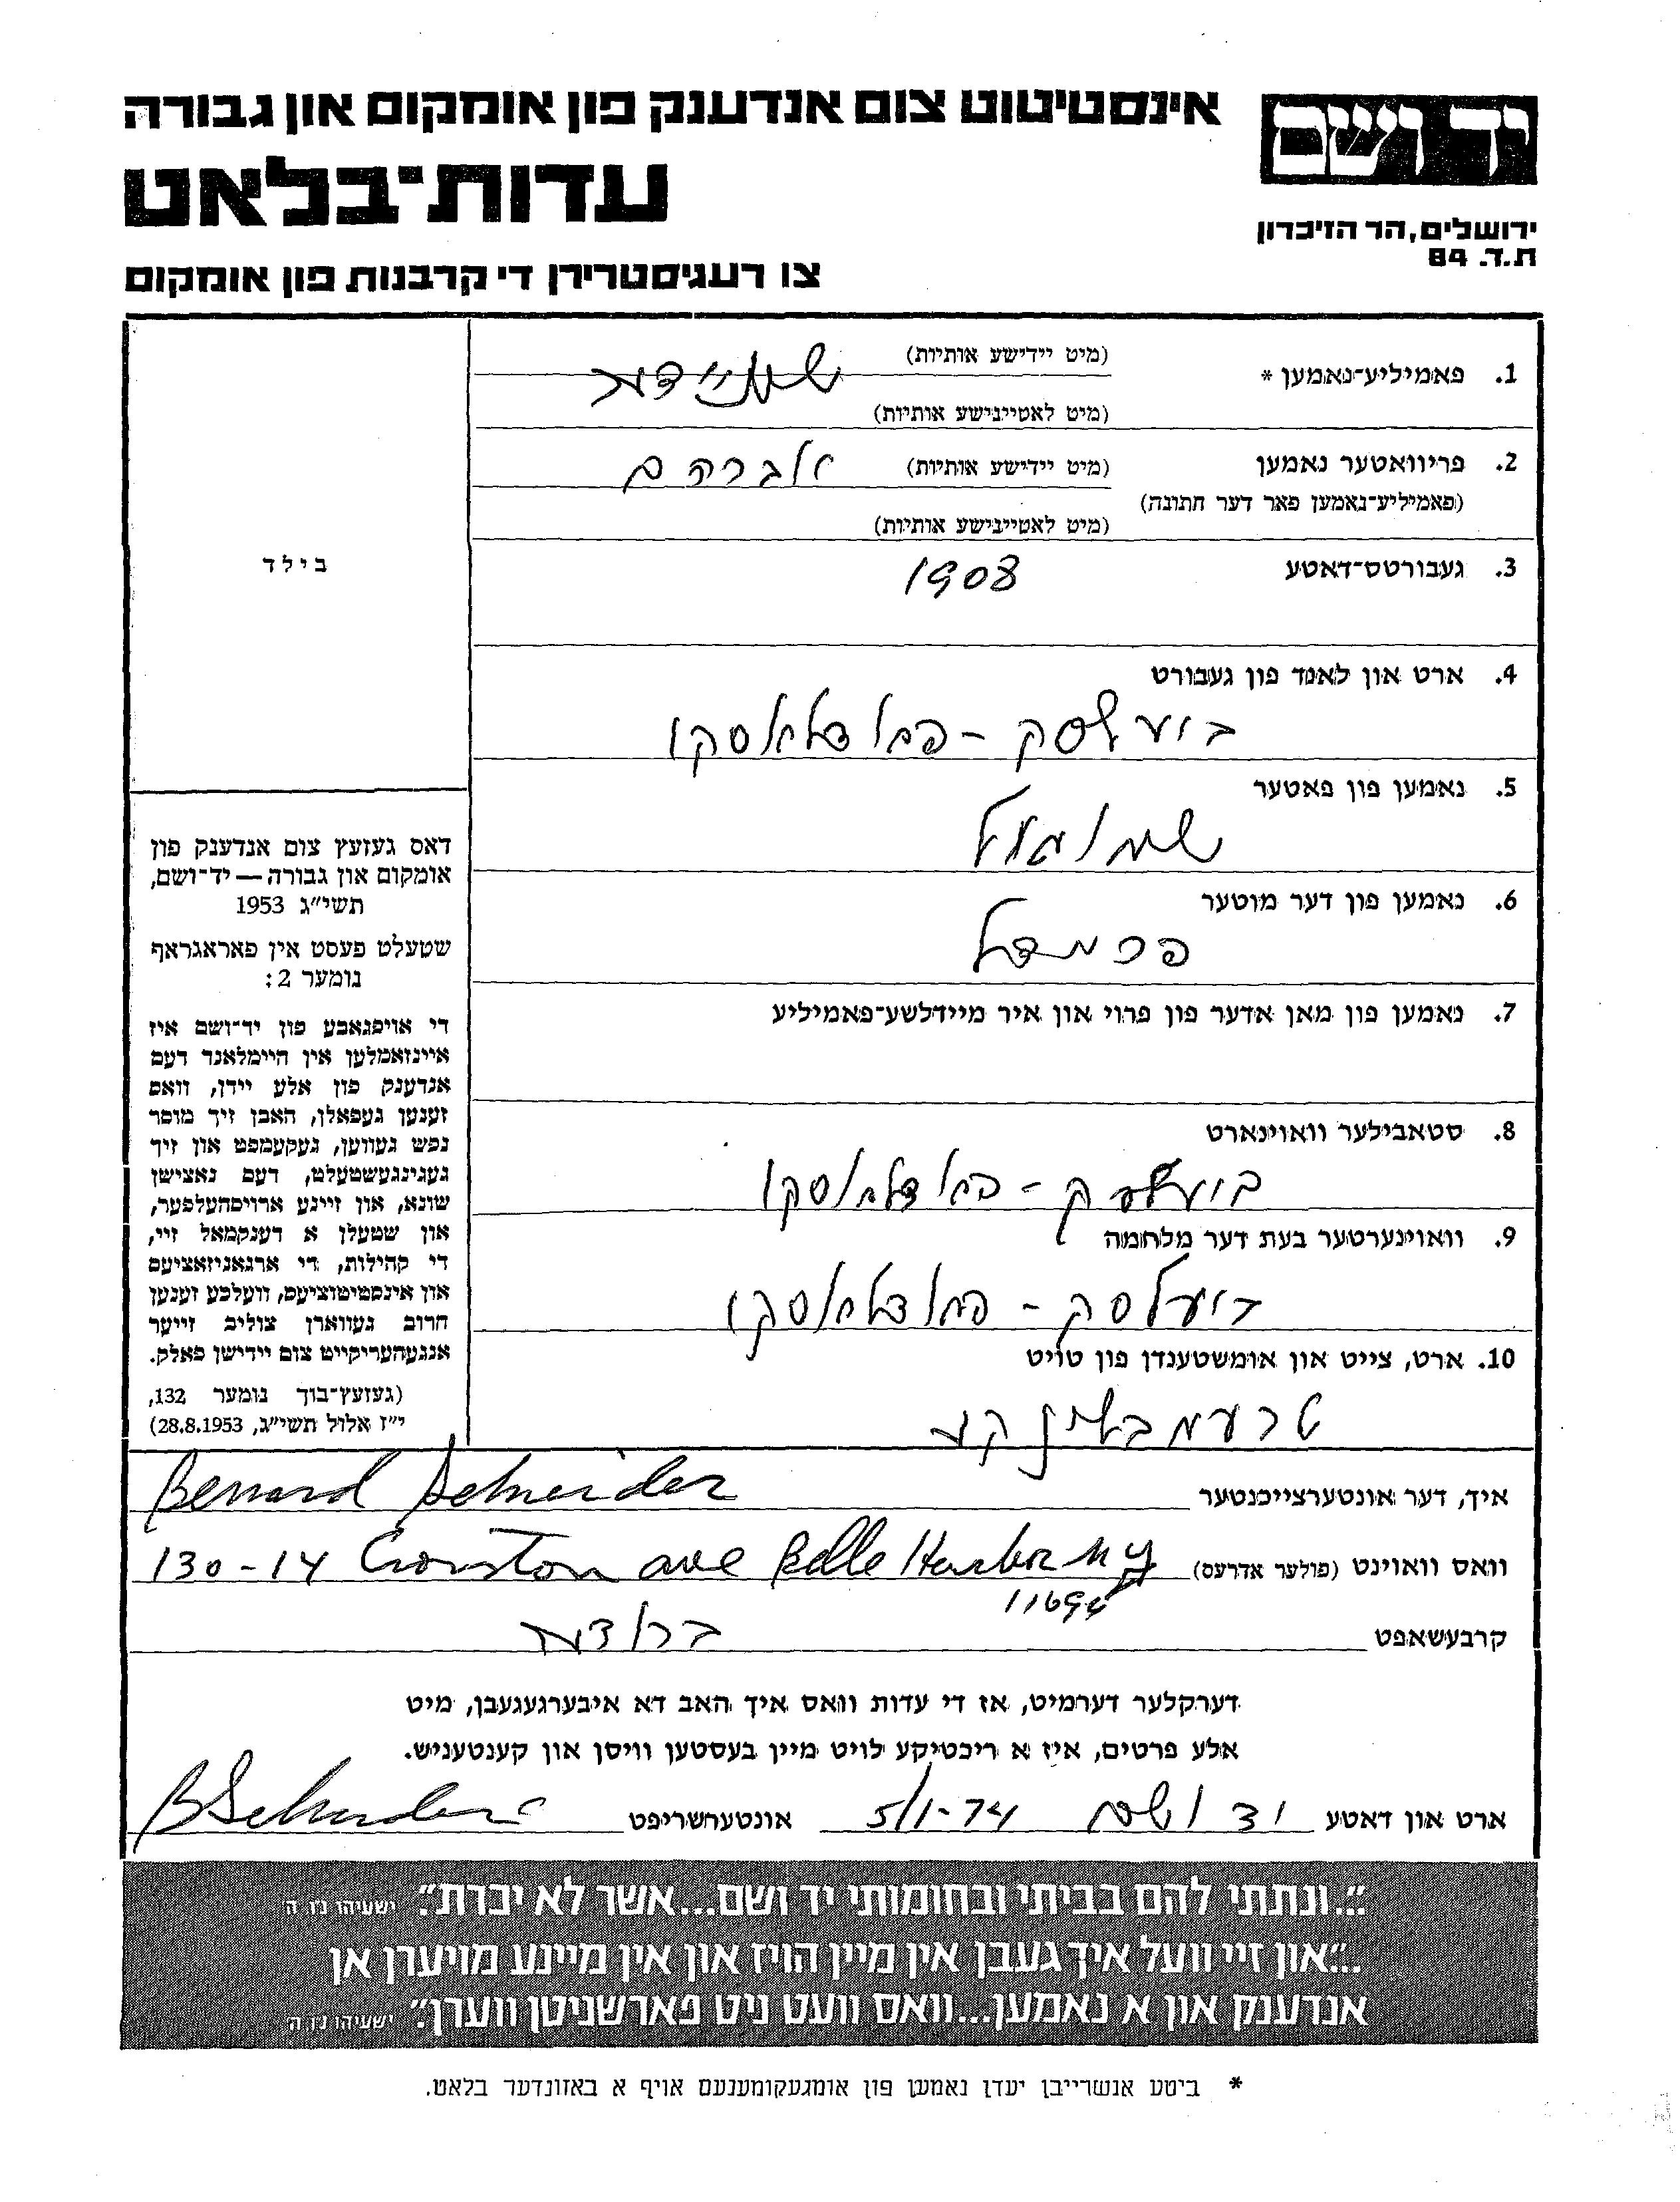 אינסטיטוט צום אנדענק פון אומקום און גבורה
יד ושם
עדות־בלאט
ירושלים, הר הזיכרון
ת.ד. 84
צו רעגיסטרירן די קרבנות פון אומקום
1. פאמיליע־נאמען *
(מיט יידישע אותיות) שניידער
(מיט לאטייניש​ע אותיות)
2. פריוואטער נאמען (מיט יידישע אותיות) אברהם
(פאמיליע־נאמען פאר דער חתונה)
(מיט לאטיינישע אותיות)
3. געבורטס־דאטע 1908
בילד
4. ארט און לאנד פון געבורט
ביעלסק - פאדלאסקי
5. נאמען פון פאטער
שמואל
6. נאמען פון דער מוטער
7. נאמען פון מאן אדער פון פרוי און איר מיידלשע־פאמיליע
8. סטאבילער וואוינארט
ביעלסק - פאדלאסקי
9. וואוינערטער בעת דער מלחמה
ביעלסק - פאדלאסקי
10. ארט, צייט און אומשטענדן פון טויט
טרעמבלינקע
דאס געזעץ צום אנדענק פון
אומקום און גבורה — יד־ושם,
תשי״ג 1953
שטעלט פעסט אין פאראגראף
נומער 2:
די אויפגאבע פון יד־ושם איז
איינזאמלען אין היימלאנד דעם
אנדענק פון אלע יידן, וואס
זענען געפאלן, האבן זיך מוסר
נפש געווען, געקעמפט און זיך
געגינגעשטעלט, דעם נאצישן
שונא, און זיינע ארויסהעלפער,
און שטעלן א דענקמאל זיי,
די קהילות, די ארגאניזאציעס
און אינסטיטוציעס, וועלכע זענען
חרוב געווארן צוליב זייער
אנגעהעריקייט צום יידישן פאלק.
(געזעץ־בוך נומער 132,
י״ז אלול תשי״ג, 28.8.1953)
איך, דער אונטערצייכנטער Bernard Schneider
וואס וואוינט (פולער אדרעס) 130-14 Cronston ave Belle Harbor NY
11694
קרבעשאפט ברודער
דערקלער דערמיט, אז די עדות וואס איך האב דא איבערגעגעבן, מיט
אלע פרטים, איז א ריכטיקע לויט מיין בעסטען וויסן און קענטעניש.
ארט און דאטע יד ושם 5/1-74 אונטערשריפט B Schneider
״...ונתתי להם בביתי ובחומותי יד ושם...אשר לא יכרת״. ישעיהו נו, ה
...״און זיי וועל איך געבן אין מיין הויז און אין מיינע מויערן אן
אנדענק און א נאמען...וואס וועט ניט פארשניטן ווערן״. ישעיהו נו, ה׳
* ביטע אנשרייבן יעדן נאמען פון אומגעקומענעם אויף א באזונדער בלאט.